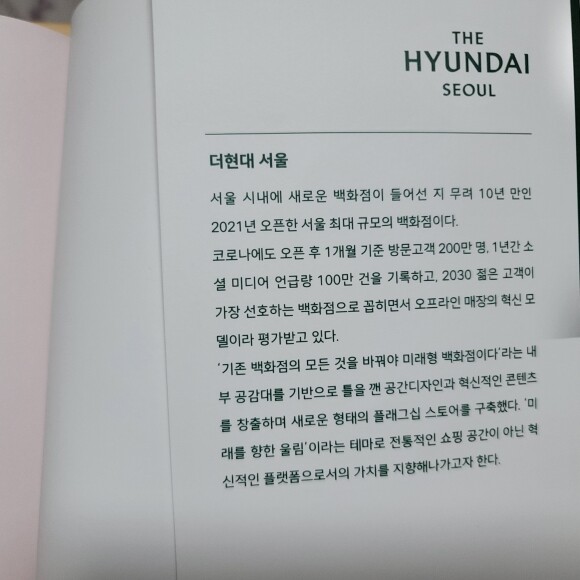 THE
HYUNDAI
SEOUL
더현대 서울
서울 시내에 새로운 백화점이 들어선 지 무려 10년 만인
2021년 오픈한 서울 최대 규모의 백화점이다.
코로나에도 오픈 후 1개월 기준 방문고객 200만 명, 1년간 소
셜 미디어 언급량 100만 건을 기록하고, 2030 젊은 고객이
가장 선호하는 백화점으로 꼽히면서 오프라인 매장의 혁신 모
델이라 평가받고 있다.
‘기존 백화점의 모든 것을 바꿔야 미래형 백화점이다’라는 내
부 공감대를 기반으로 틀을 깬 공간디자인과 혁신적인 콘텐츠
를 창출하며 새로운 형태의 플래그십 스토어를 구축했다. ‘미
래를 향한 울림’이라는 테마로 전통적인 쇼핑 공간이 아닌 혁
신적인 플랫폼으로서의 가치를 지향해나가고자 한다.